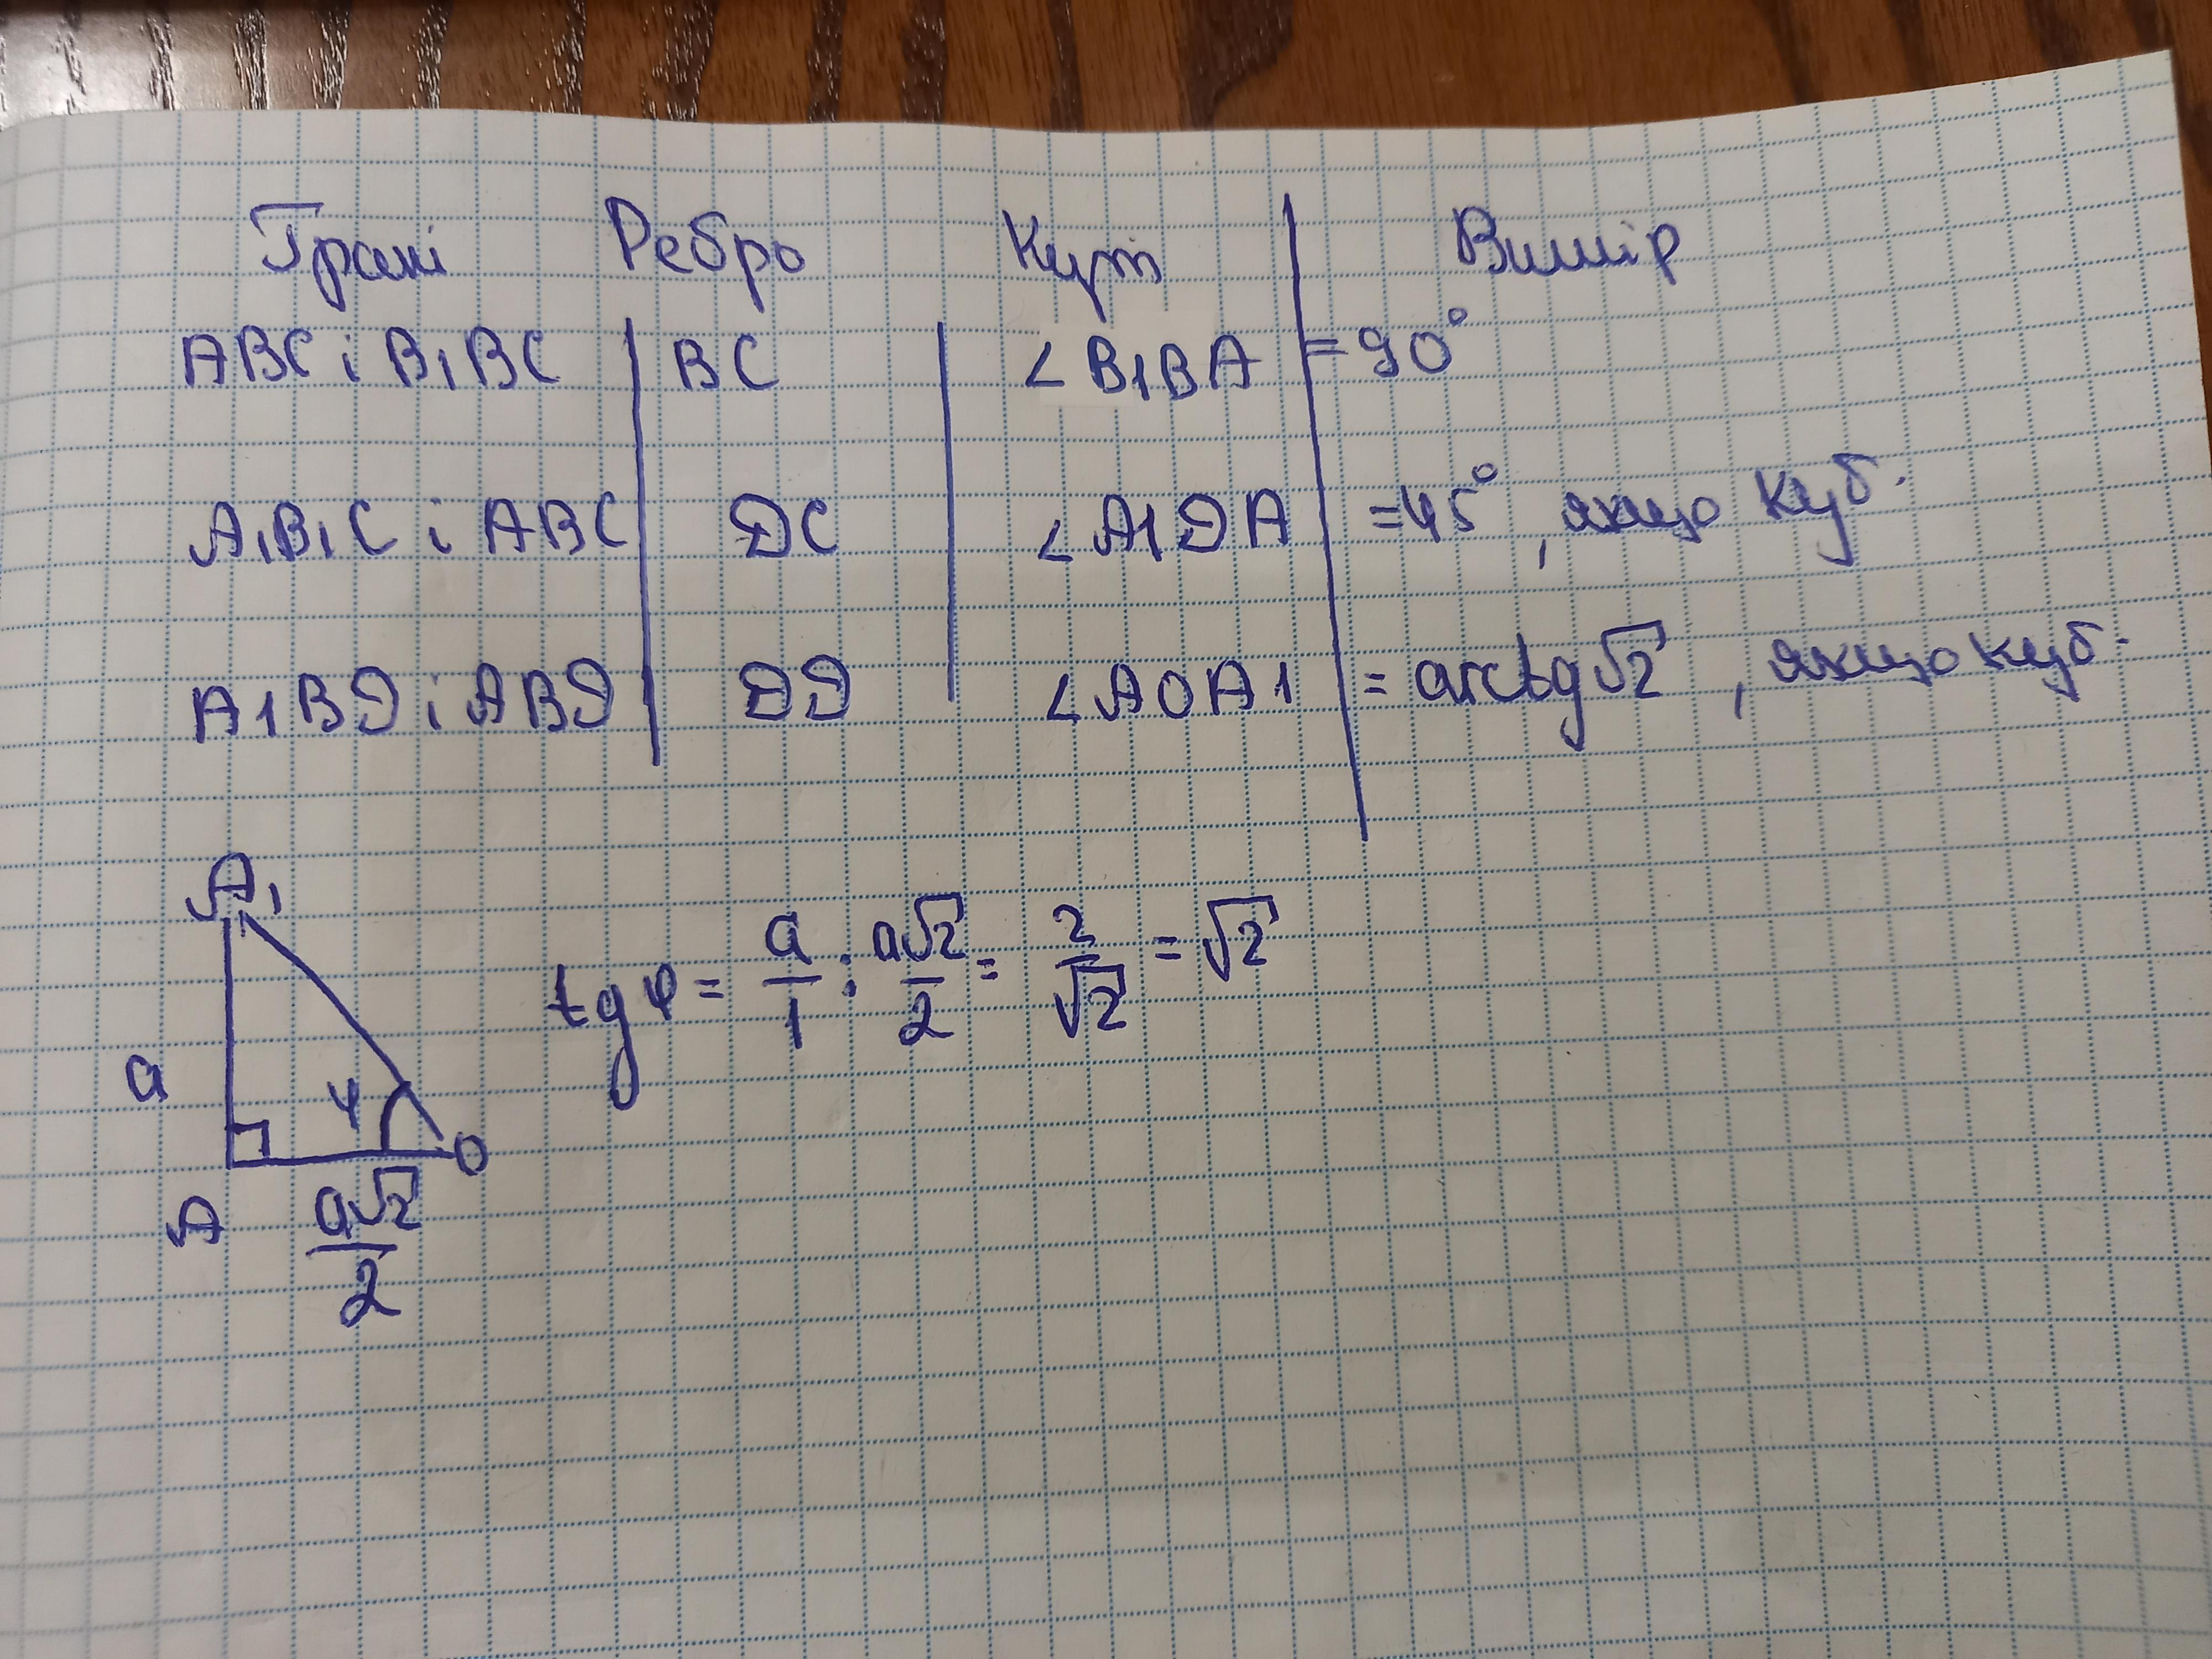 Грані Ребро Кут Вимір
ABC і B₁BC BC ∠B₁BA = 90°
A₁B₁C і ABC DC ∠A₁DA = 45°, якщо куб.
A₁BD і ABD DD ∠AOA₁ = arctg√2, якщо куб.
A₁
tg φ = a/1 : a√2/2 = 2/√2 = √2
a
φ
O
A
a√2/2